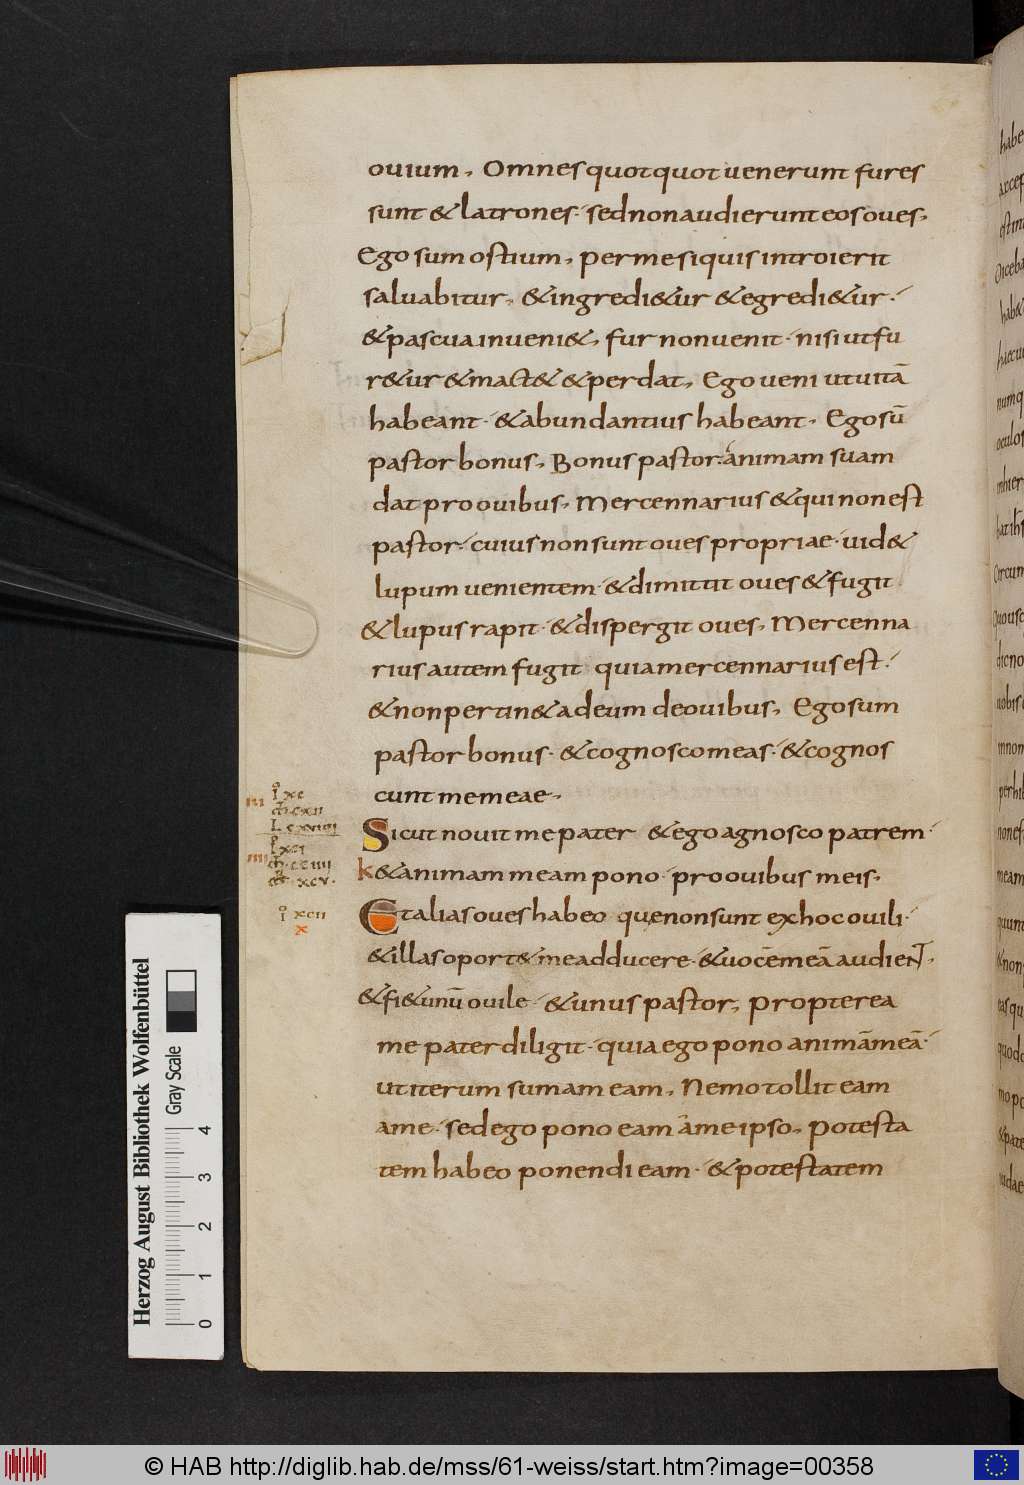 ouium, Omnes quotquot uenerunt fures
sunt & latrones· sed non audierunt eos oues,
Ego sum ostium, per me si quis introierit
saluabitur, & ingredi&ur & egredi&ur·
& pascua inueni&, fur non uenit· nisi ut fu
r&ur & mact& & perdat, Ego ueni ut uitā
habeant· & abundantius habeant, Ego sū
pastor bonus, Bonus pastor· animam suam
dat pro ouibus, Mercennarius & qui non est
pastor· cuius non sunt oues propriae· uid&
lupum uenientem· & dimittit oues & fugit
& lupus rapit· & dispergit oues, Mercenna
rius autem fugit quia mercennarius est·
& non pertin& ad eum de ouibus, Ego sum
pastor bonus· & cognosco meas· & cognos
cunt me meae,
Sicut nouit me pater & ego agnosco patrem·
k & animam meam pono· pro ouibus meis,
Et alias oues habeo que non sunt ex hoc ouili·
& illas oport& me adducere· & uocē meā audient,
& fi& unū ouile· & unus pastor, propterea
me pater diligit· quia ego pono animā meā·
ut iterum sumam eam, Nemo tollit eam
a me· sed ego pono eam a me ipso, potesta
tem habeo ponendi eam· & potestatem
III
xc
cxii
Lcxviiii
IIII
xci
cciiii
xcv·
xcii
x
Herzog August Bibliothek Wolfenbüttel
Gray Scale
0 1 2 3 4
© HAB http://diglib.hab.de/mss/61-weiss/start.htm?image=00358